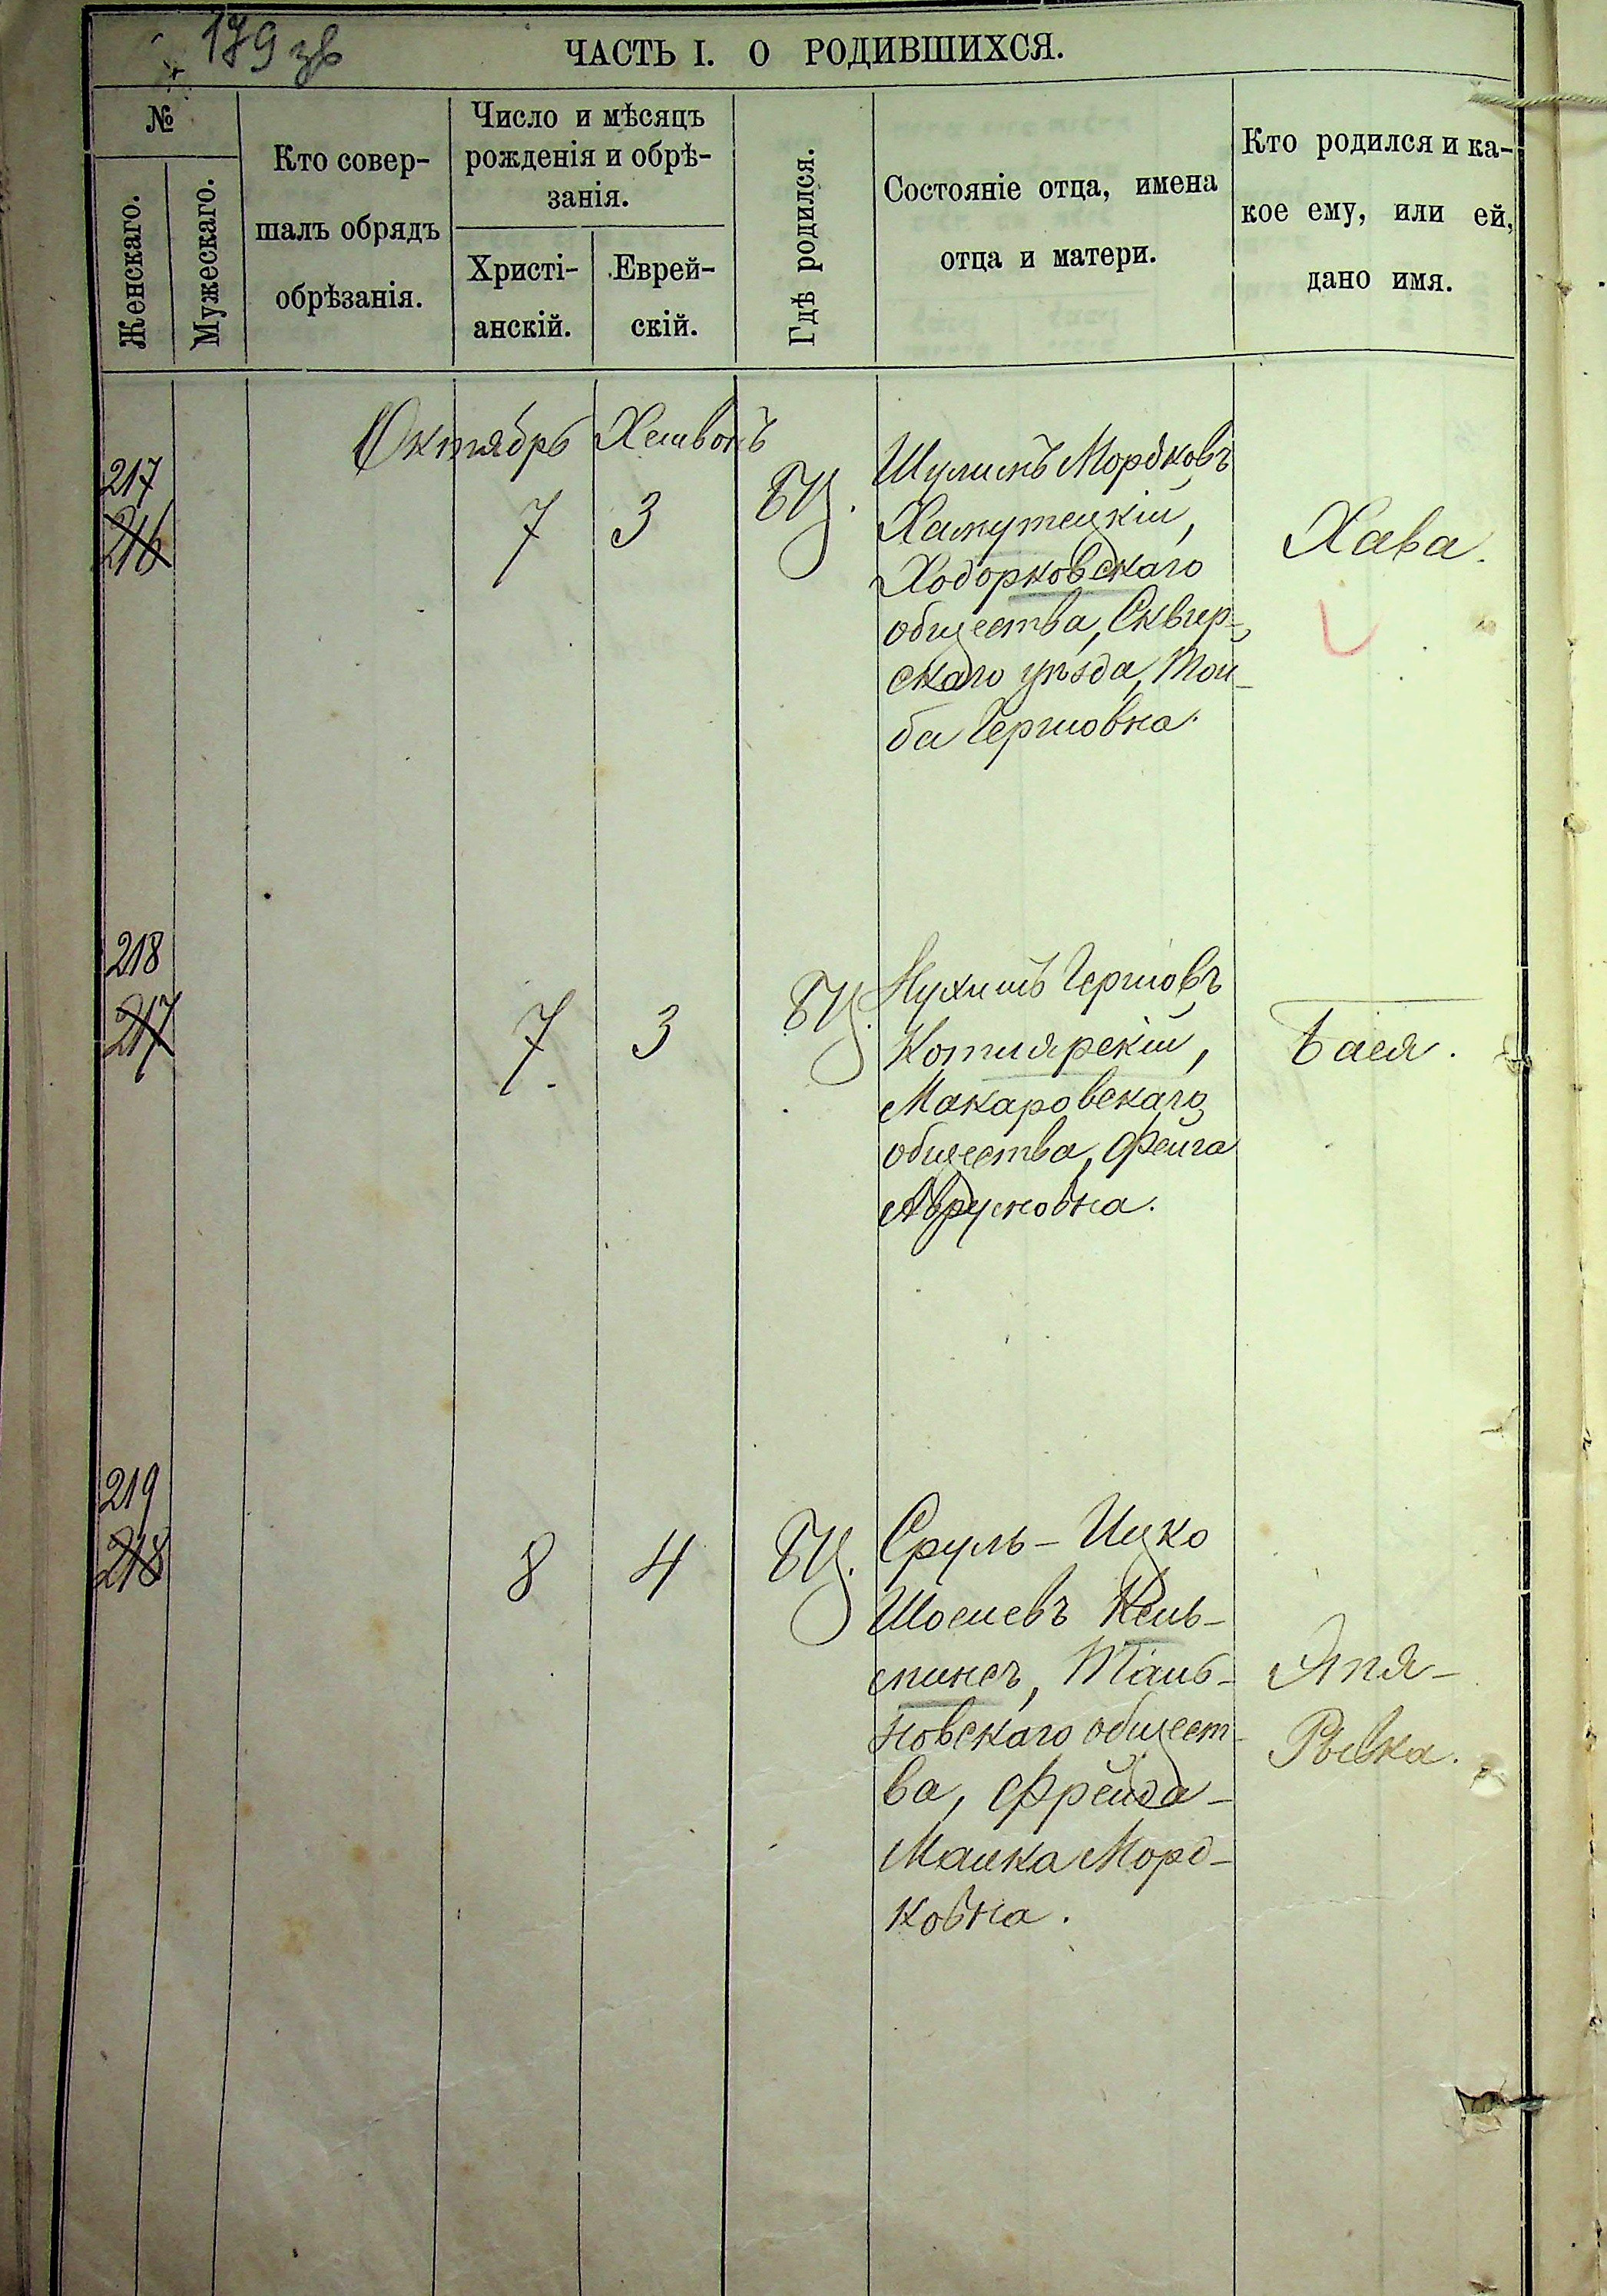 179 зв
ЧАСТЬ I. О РОДИВШИХСЯ.
№
Женскаго.
Мужескаго.
Кто совер-
шалъ обрядъ
обрѣзанія.
Число и мѣсяцъ
рожденія и обрѣ-
занія.
Христі-
анскій.
Еврей-
скій.
Гдѣ родился.
Состояніе отца, имена
отца и матери.
Кто родился и ка-
кое ему, или ей,
дано имя.
Октябрь Хешвонъ
217
216
7
3
БЦ.
Шулимъ Мордковъ
Хамутецкій,
Ходорковскаго
общества, Сквир-
скаго уѣзда, Той-
ба Гершовна.
Хава.
218
217
7.
3
БЦ.
Нухимъ Гершовъ
Котлярскій,
Макаровскаго
общества, Фейга
Аврумовна.
Бася.
219
218
8
4
БЦ.
Сруль-Ицко
Шоелевъ Кель-
манъ, Таль-
новскаго общест-
ва, Фрейда-
Малка Морд-
ковна.
Этя-
Рывка.